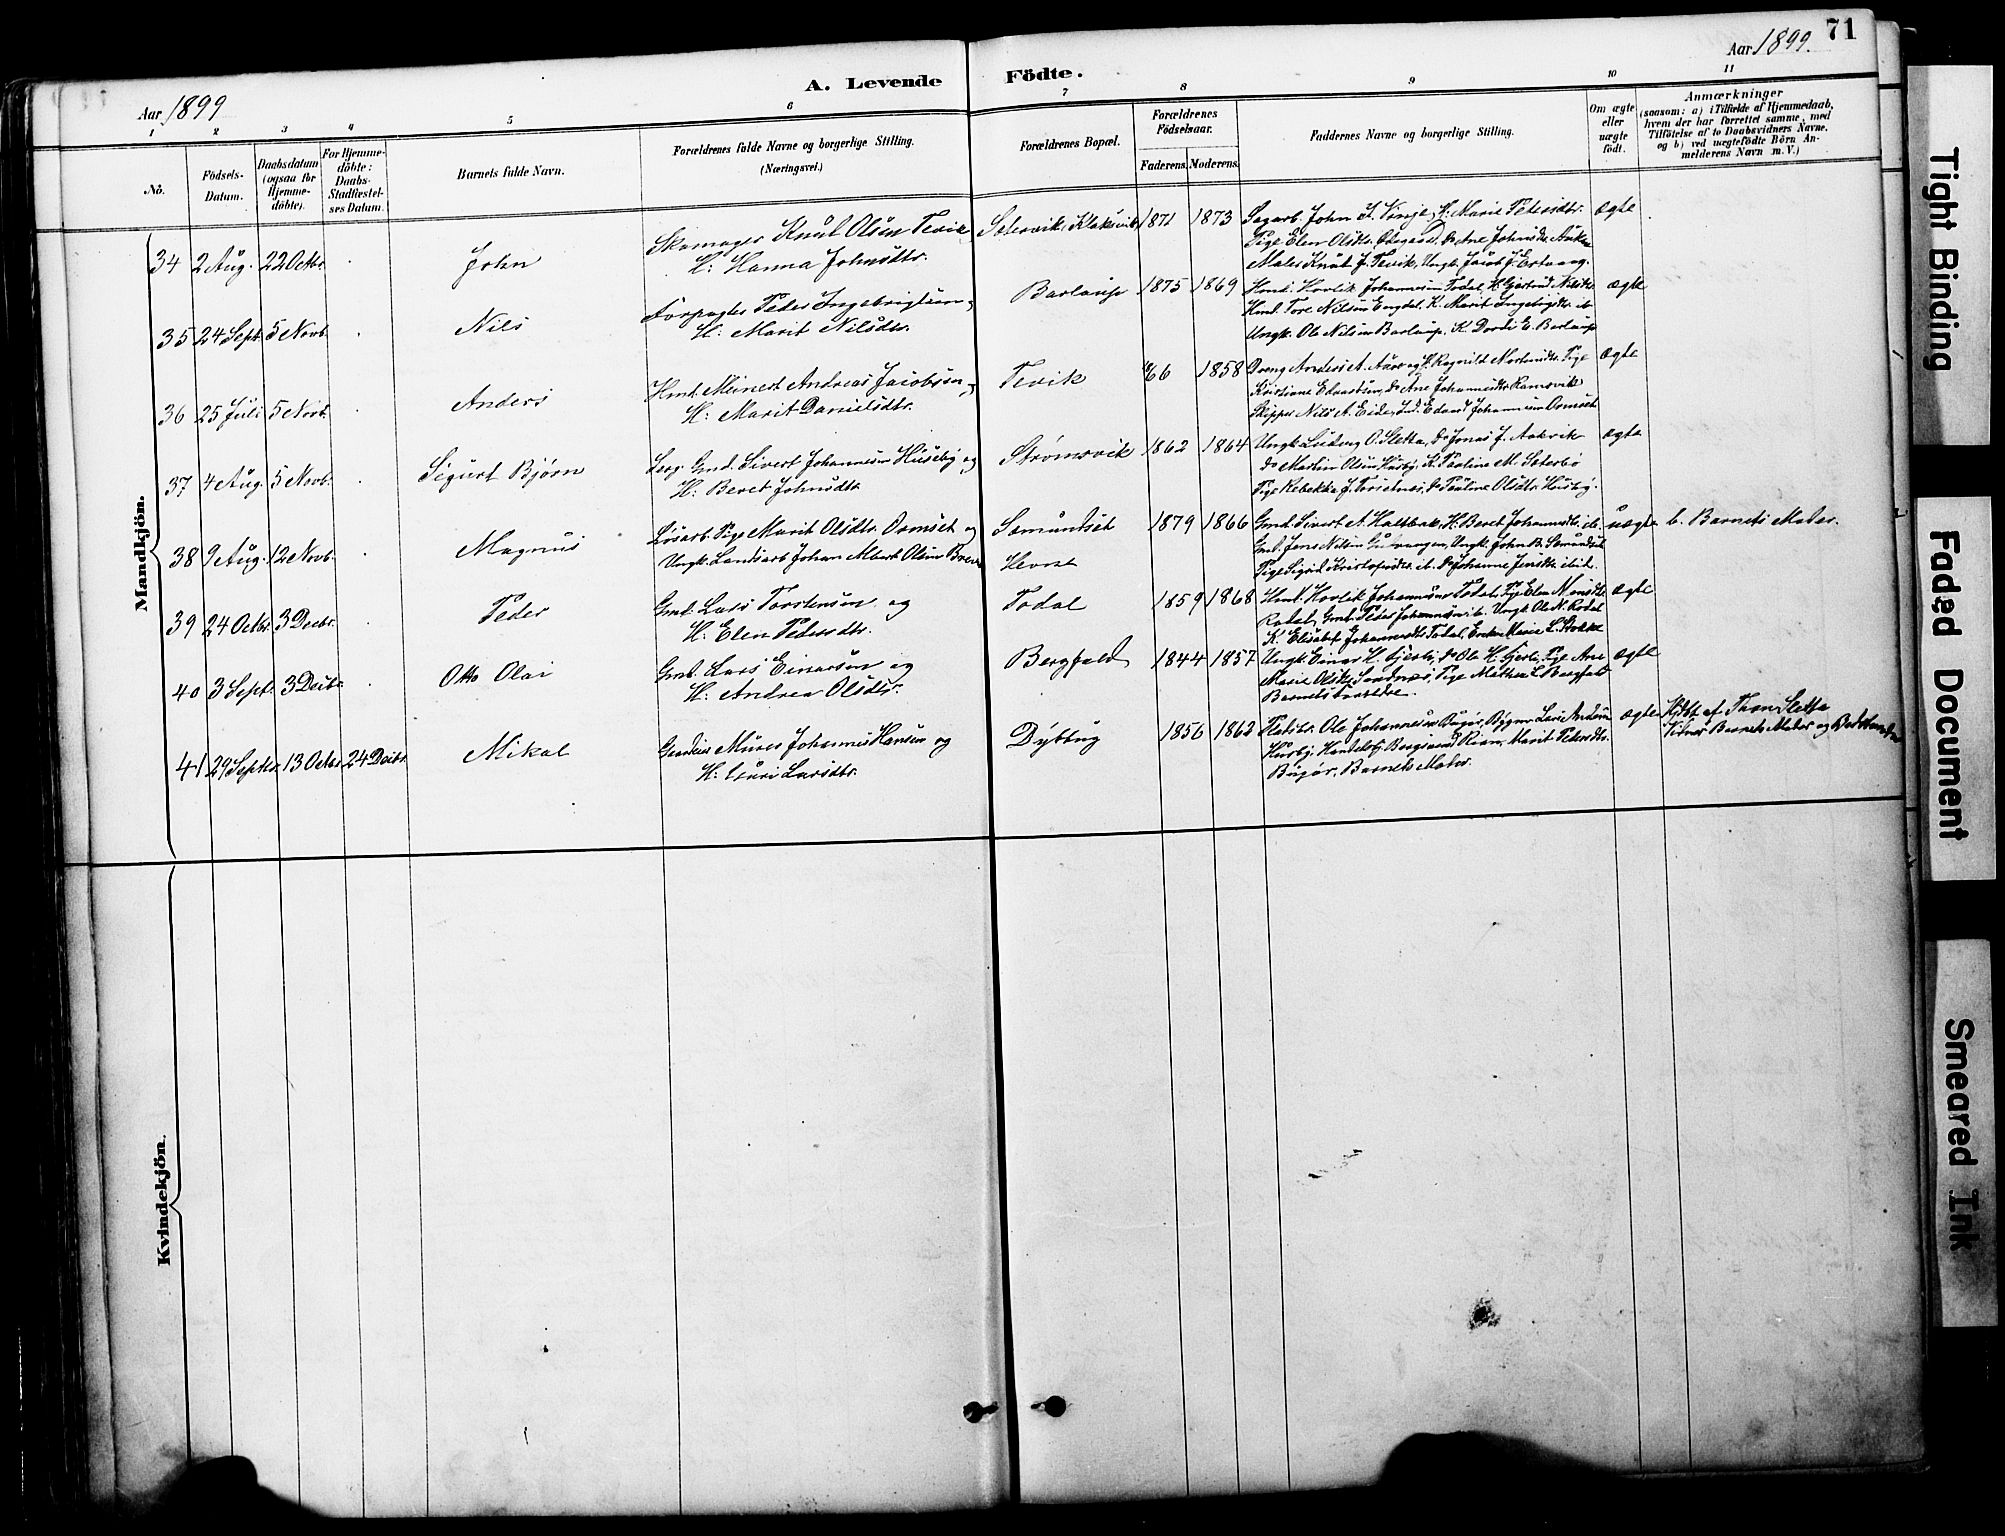 71
Aar 1899
A. Levende Födte.
Aar 1899.
1 2 3 4 5 6 7 8 9 10 11
No.
Födsels-
Datum.
Daabsdatum
(ogsaa for
Hjemme-
döbte).
For Hjemme-
döbte:
Daabs-
Stadfæstel-
ses Datum.
Barnets fulde Navn.
Forældrenes fulde Navne og borgerlige Stilling.
(Næringsvei.)
Forældrenes Bopæl.
Forældrenes
Födselsaar.
Faderens. Moderens.
Faddernes Navne og borgerlige Stilling.
Om ægte
eller
uægte
födt.
Anmærkninger
(saasom: a) i Tilfælde af Hjemmedaab,
hvem der har forrettet samme, med
Tilföielse af to Daabsvidners Navne,
og b) ved uægtefödte Börn An-
melderens Navn m. V.)
Mandkjön.
34 2 Aug. 22 Octbr. John
Skomager Knut Olsen Tevik,
H: Hanna Johnsdtr.
Sætervik, Klaksvik 1871 1873
Sagarb. John S. Vinje, H. Marie Petersdtr.
Pige Elen Olsdtr. Ødegaard, Do Ane Johnsdtr.
Maler Knut J. Tevik, Ungk. Jacob J. Ertvaag.
ægte
35 24 Sept. 5 Novb. Nils
Forpagter Peder Ingebrigtsen,
H: Marit Nilsdtr.
Barlaup 1875 1869
Hmd. Horlik Johannesen Todal, H. Gjertrud Nilsdtr.
Hmd. Tore Nilsen Engdal, K. Marit Ingebrigtsdtr. ib.
Ungk. Ole Nilsen Barlaup, K. Dordi E. Barlaup
ægte
36 25 Juli 5 Novb. Anders
Hmd. Meinert Andreas Jacobsen,
H: Marit Danielsdtr.
Tevik 66 1858
Dreng Anders A. Aure og H. Ragnild Mortensdtr. Pige
Kristiane Edvardsen, Do Ane Johannesdtr. Ramsvik
Skipper Nils A. Eide, Ind. Edvard Johannesen Ormset
ægte
37 4 Aug. 5 Novb. Sigurt Bjørn
Gmd. Sivert Johannesen Huseby og
H: Beret Johnsdtr.
Strømsvik 1862 1864
Ungk. Ludvig O. Sletta, Do Jonas J. Aakvik
Do Martin Olsen Husby, K. Pauline M. Sæterbø
Pige Rebekka J. Torsetnes, Do Pauline Olsdtr. Husby.
ægte
38 9 Aug. 12 Novb. Magnus
Løsarb. Pige Marit Olsdtr. Ormset og
Ungk. Landarb. Johan Albert Olsen
Semundset
Hevne
1879 1866
Gmd. Sivert A. Holtbak, H. Beret Johannesdtr. ib.
Gmb. Jens Nilsen Gulvaagen, Ungk. John B. Semundset
Pige Sigrid Kristofersdtr. ib. Do Johanne Jensdtr. ibid.
uægte b. Barnets Moder.
39 24 Octbr. 3 Decbr. Peder
Gmd. Lars Torstensen og
H: Elen Pedersdtr.
Todal 1859 1868
Hmd. Horlik Johannesen Todal, Pige Elen Monsdtr.
Rodal, Gmd. Peder Johannesen ib. Ungk. Ole N. Rodal
K. Elisabet Johannesdtr. Todal, Enke Marie L. Stokke
ægte
40 3 Sept. 3 Decbr. Otto Olai
Gmd. Lars Einarsen og
H: Andrea Olsdtr.
Bergfald 1844 1857
Ungk. Einar H. Gjerli, Do Ole H. Gjerli, Pige Ane
Marie Olsdtr. Sandnes, Pige Mathea L. Bergfald
Barnets Forældre.
ægte
41 29 Septbr. 13 Octbr. 24 Decbr. Mikal
Murer Johannes Hansen og
H: Guri Larsdtr.
Dybtug 1856 1862
Pladsbr. Ole Johannesen Bugør, Bygm. Lars Andersen
Husby, Handelsbj. Bergsvend Rian, Marit Pedersdtr.
Bugør, Barnets Moder.
ægte
Hjdbt. af Thom Sletta
Vidner Barnets Moder og
Kvindekjön.
Tight Binding
Faded Document
Smeared Ink